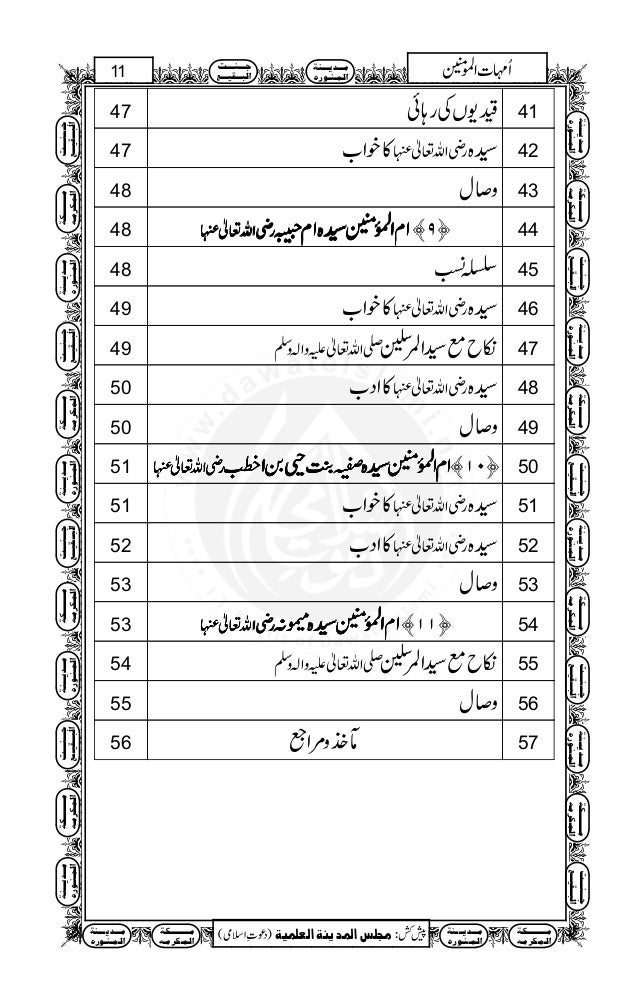 اُمہات المؤمنین 11
41 قیدیوں کی رہائی 47
42 سیدہ رضی اللہ تعالیٰ عنہا کا خواب 47
43 وصال 48
44 ﴿۹﴾ ام المؤمنین سیدہ ام حبیبہ رضی اللہ تعالیٰ عنہا 48
45 سلسلہ نسب 48
46 سیدہ رضی اللہ تعالیٰ عنہا کا خواب 49
47 نکاح مع سید المرسلین صلی اللہ تعالیٰ علیہ والہ وسلم 49
48 سیدہ رضی اللہ تعالیٰ عنہا کا ادب 50
49 وصال 50
50 ﴿۱۰﴾ ام المؤمنین سیدہ صفیہ بنت حیی بن اخطب رضی اللہ تعالیٰ عنہا 51
51 سیدہ رضی اللہ تعالیٰ عنہا کا خواب 51
52 سیدہ رضی اللہ تعالیٰ عنہا کا ادب 52
53 وصال 53
54 ﴿۱۱﴾ ام المؤمنین سیدہ میمونہ رضی اللہ تعالیٰ عنہا 53
55 نکاح مع سید المرسلین صلی اللہ تعالیٰ علیہ والہ وسلم 54
56 وصال 55
57 مآخذ و مراجع 56
پیش کش: مجلس المدینة العلمیة (دعوتِ اسلامی)